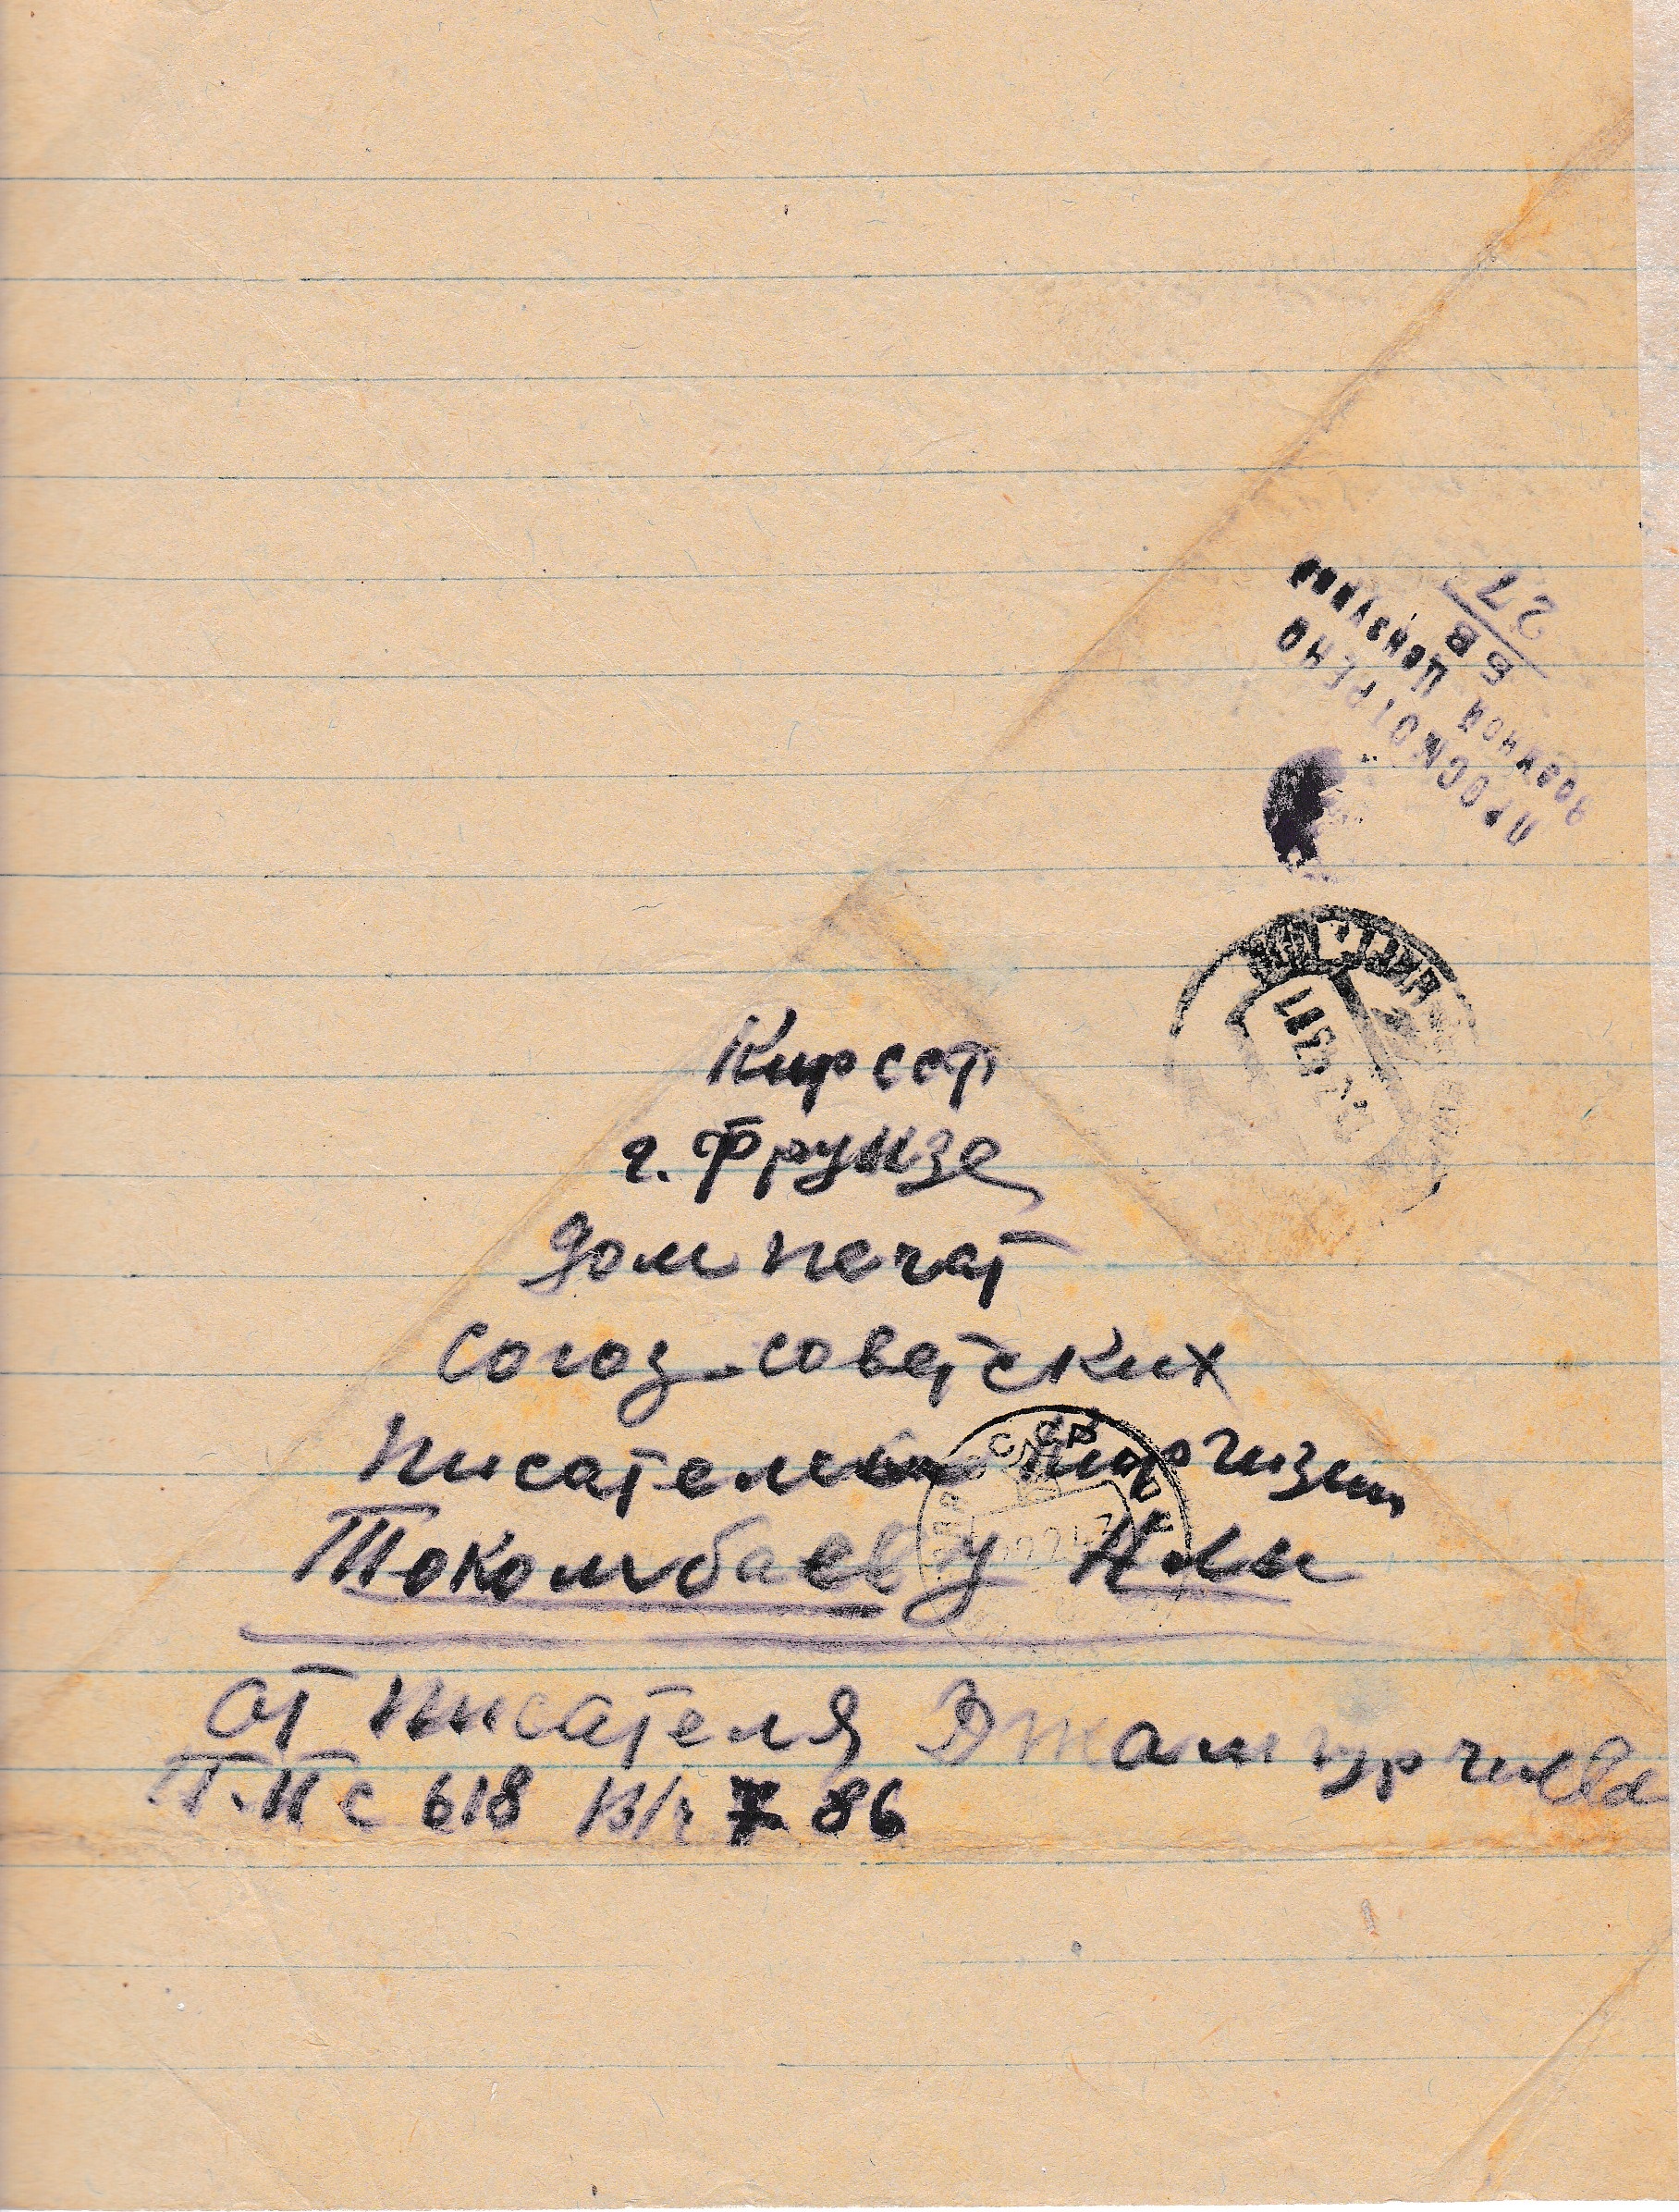 ПРОСМОТРЕНО
Военной Цензурой
БВ
27
Кирсср
г. Фрунзе
Дом печат
Союз советских
писатель Киргизии
Токомбаеву Алы
от писателя Джангурчиева
П.Пс 618 в/ч 86